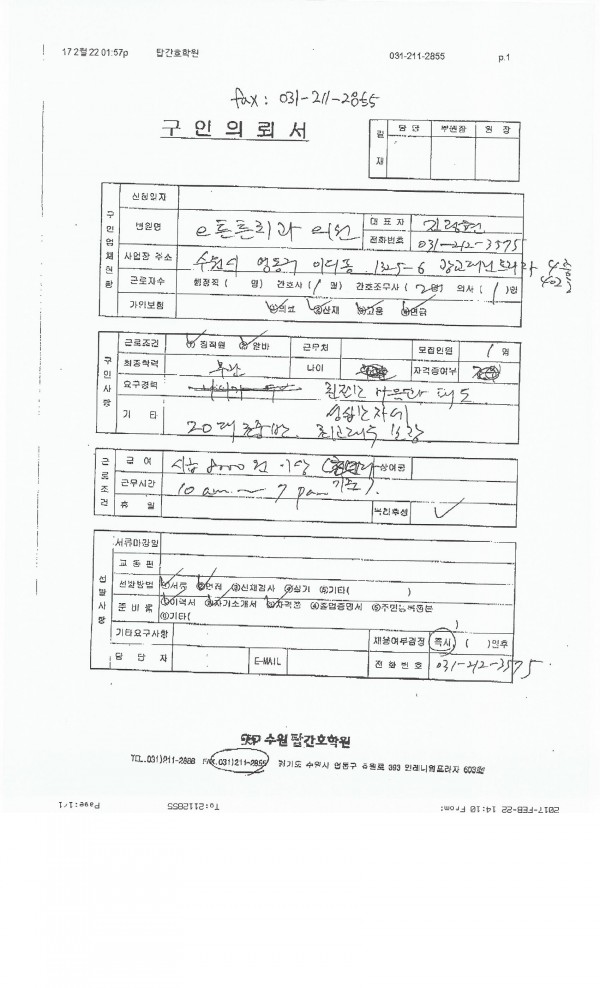 17 2월 22 01:57p 탑간호학원 031-211-2855 p.1
fax: 031-211-2855
구 인 의 뢰 서
결 재 담 당 부원장 원 장
구인업체현황
신청일자
병원명 e튼튼 의원 대 표 자
전화번호 031-212-3575
사업장 주소 수원시 영통구 이의동 1325-6 4층 402호
근로자수 행정직 ( 명) 간호사 (1 명) 간호조무사 (2 명) 의사 (1)명
가입보험 ①의료 ②산재 ③고용 ④연금
구인사항
근로조건 ① 정직원 ② 알바 근무처 모집인원 1 명
최종학력 무관 나이 자격증여부
요구경력
기 타 성실한 자세
20대
근로조건
급 여 시급 8000원 이상 상여금
근무시간 10 am ~ 7 pm 기준).
휴 일 복리후생
선발사항
서류마감일
교통편
선발방법 ①서류 ②면접 ③신체검사 ④실기 ⑤기타( )
준 비 물 ①이력서 ②자기소개서 ③자격증 ④졸업증명서 ⑤주민등록등본
⑥기타( )
기타요구사항 채용여부결정 즉시, ( )일후
담 당 자 E-MAIL 전 화 번 호 031-212-3575
수원 탑간호학원
TEL.031)211-2888 FAX.031)211-2855 경기도 수원시 영통구 603호
2017-FEB-22 14:10 From: To:2112855 Page:1/1